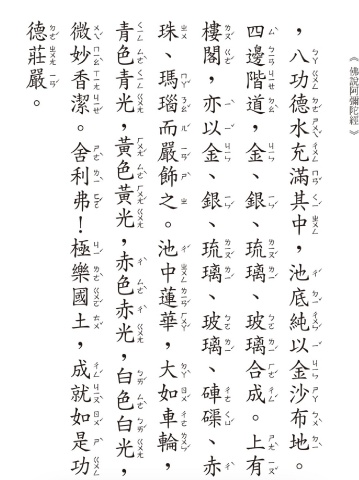 《佛說阿彌陀經》
，八功德水充滿其中，池底純以金沙布地。
四邊階道，金、銀、琉璃、玻璃合成。上有
樓閣，亦以金、銀、琉璃、玻璃、硨磲、赤
珠、瑪瑙而嚴飾之。池中蓮華，大如車輪，
青色青光，黃色黃光，赤色赤光，白色白光，
微妙香潔。舍利弗！極樂國土，成就如是功
德莊嚴。